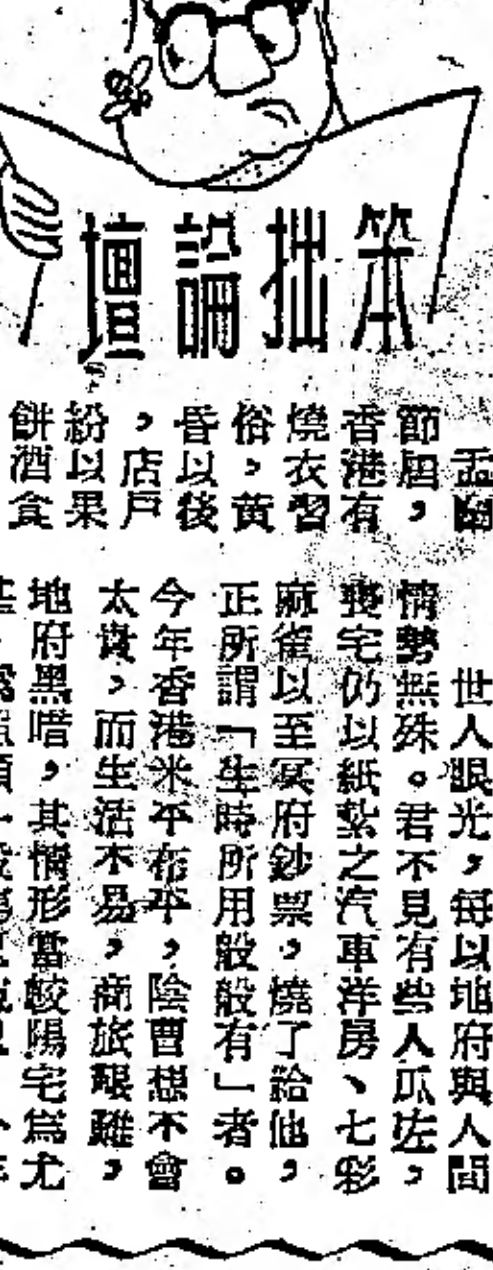 笨拙論壇
盂蘭
節屆，
香港有
燒衣習
俗，黃
昏以後
，店戶
紛以果
餅酒食
世人眼光，每以地府與人間
情勢無殊。君不見有些人瓜㔫，
喪宅仍以紙紮之汽車洋房、七彩
麻雀以至冥府鈔票，燒了給他，
正所謂「生時所用般般有」者。
今年香港米平布平，陰曹想不會
太貴，而生活不易，商旅艱難，
地府黑暗，其情形當較陽宅爲尤